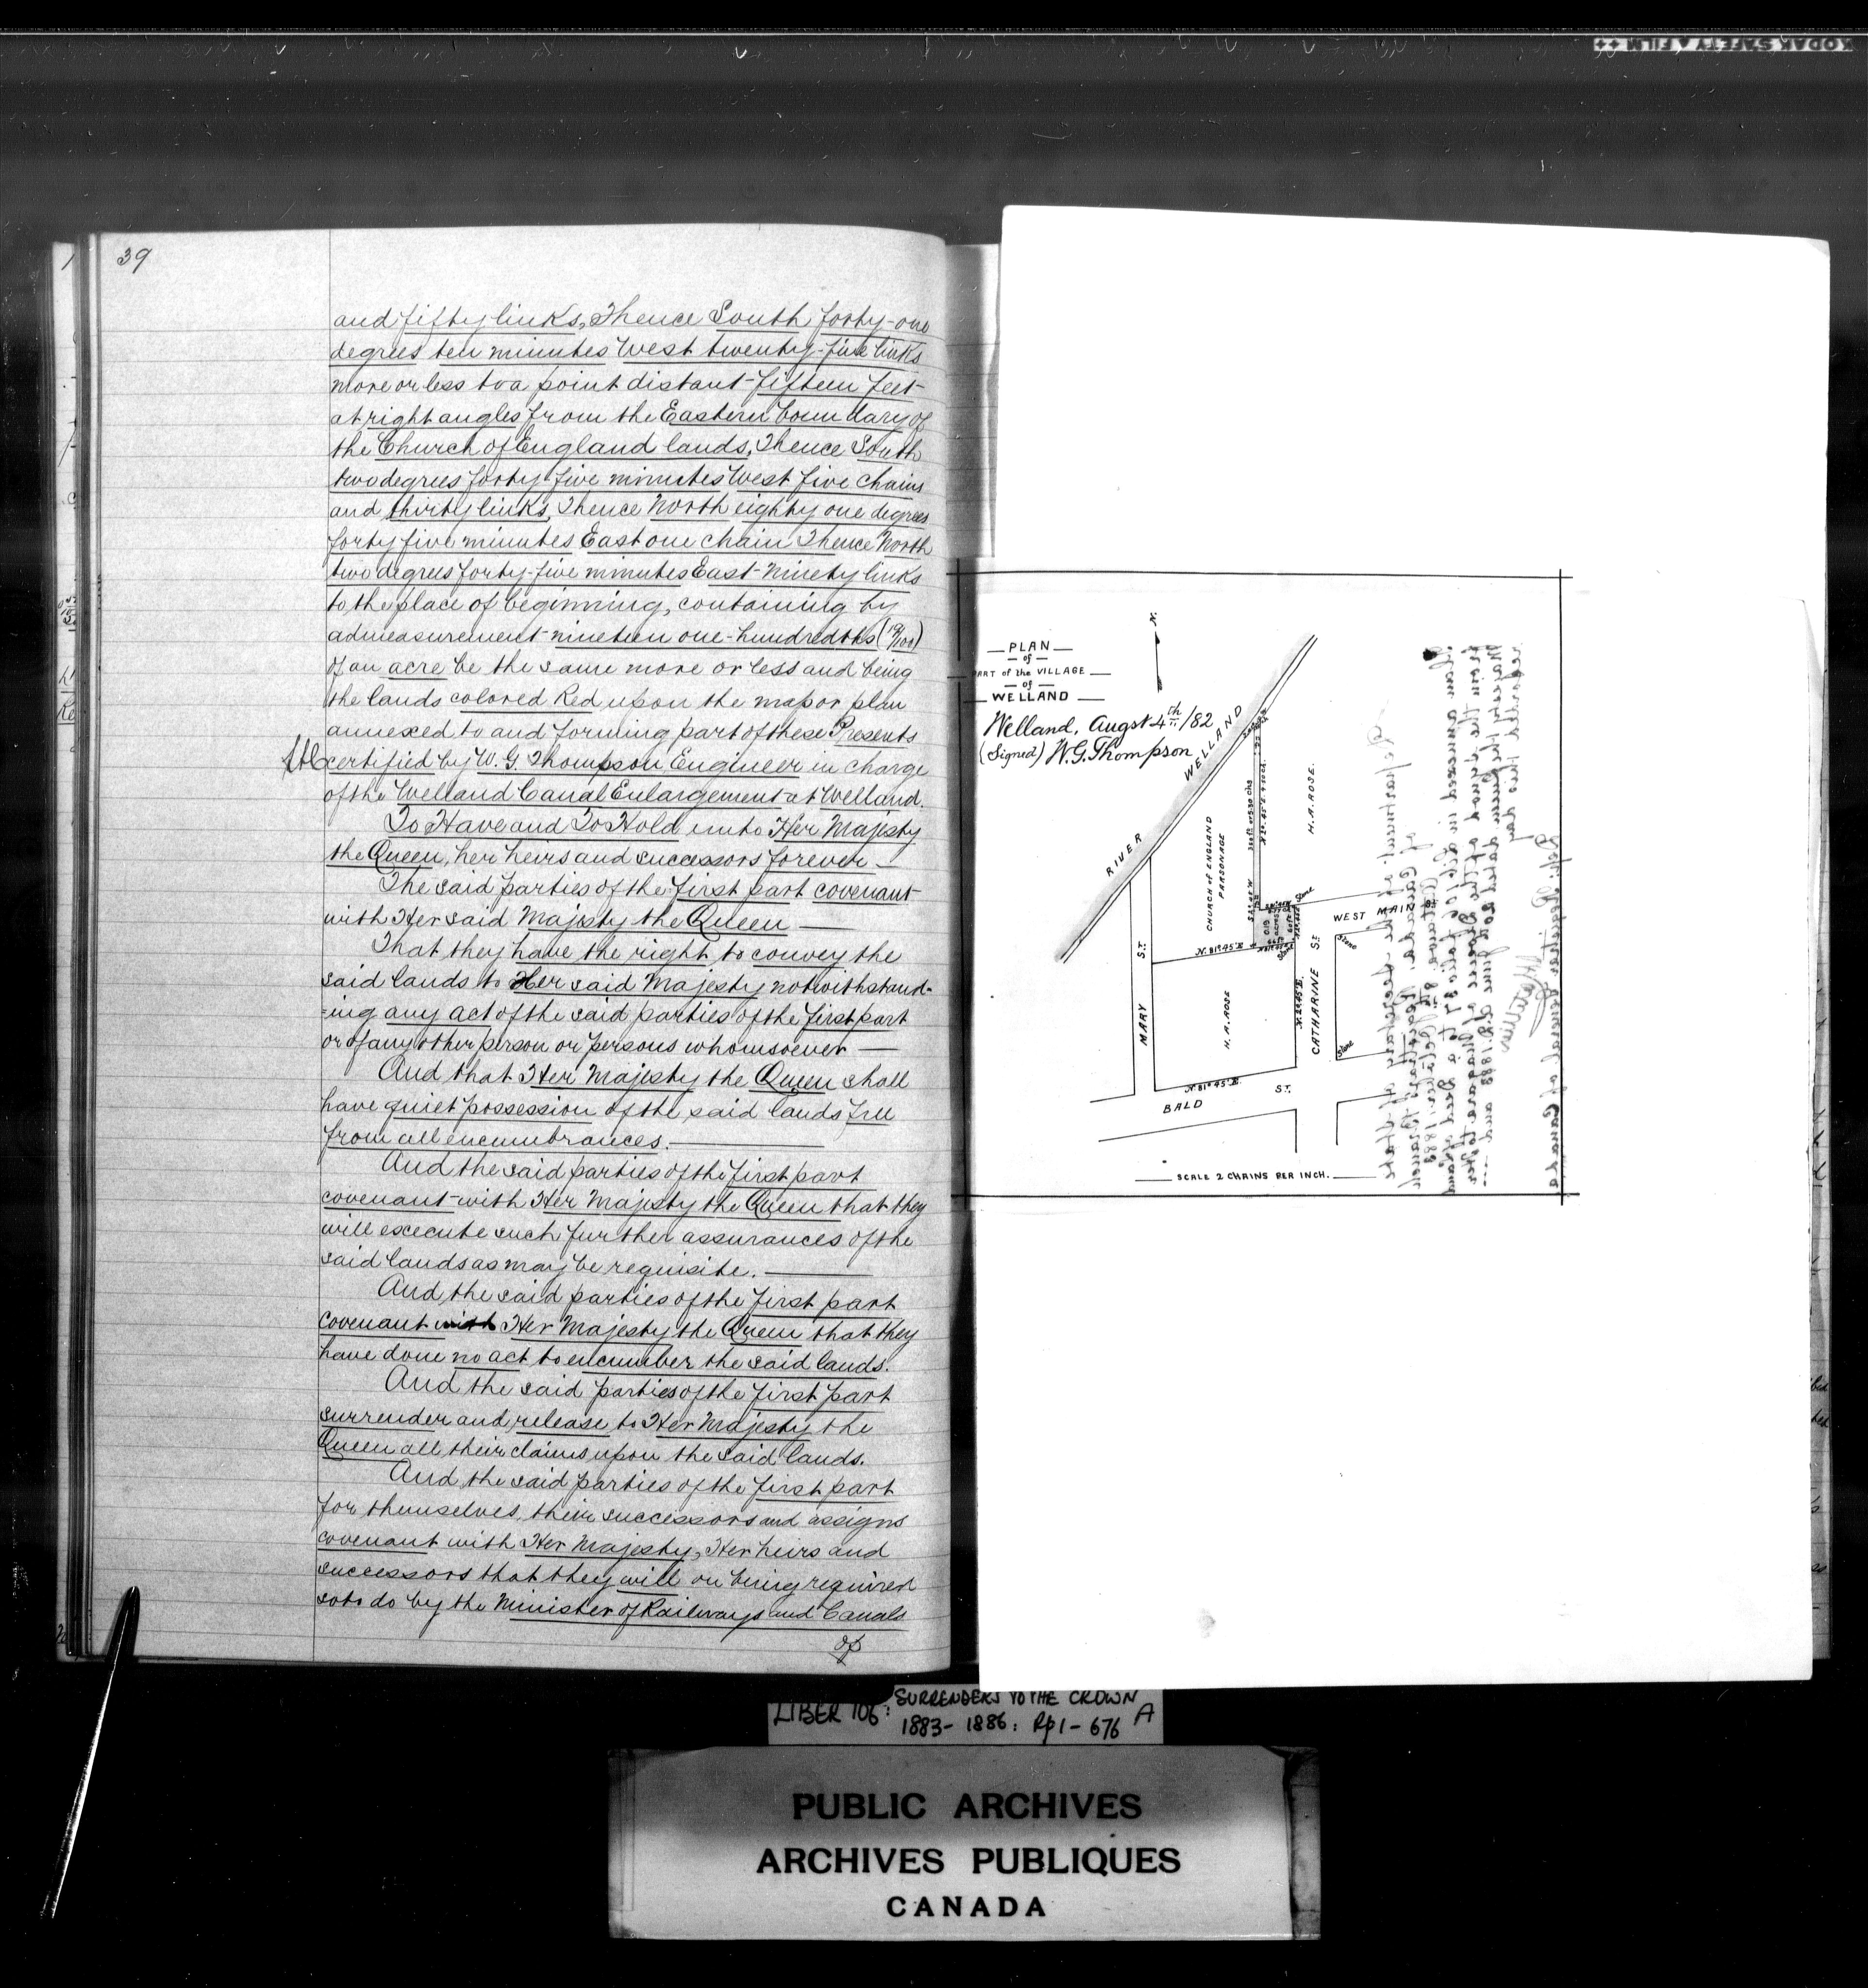 39
and fifty links, Thence South forty-one
degrees ten minutes West twenty-five links
more or less to a point distant fifteen feet
at right angles from the Eastern boundary of
the Church of England lands, Thence South
two degrees forty five minutes West five chains
and thirty links, Thence North eighty one degrees
forty five minutes East one chain Thence North
two degrees forty-five minutes East ninety links
to the place of beginning, containing by
admeasurement nineteen one-hundredths (19/100)
of an acre be the same more or less and being
the lands colored Red upon the map or plan
annexed to and forming part of these Presents
certified by W. G. Thompson Engineer in charge
of the Welland Canal Enlargement at Welland.
To Have and To Hold unto Her Majesty
the Queen, her heirs and successors forever —
The said parties of the first part covenant
with Her said Majesty the Queen —
That they have the right to convey the
said lands to Her said Majesty notwithstand-
-ing any act of the said parties of the first part
or of any other person or persons whomsoever —
And that Her Majesty the Queen shall
have quiet possession of the said lands free
from all encumbrances. —
And the said parties of the first part
covenant with Her Majesty the Queen that they
will execute such further assurances of the
said lands as may be requisite. —
And the said parties of the first part
covenant with Her Majesty the Queen that they
have done no act to encumber the said lands.
And the said parties of the first part
surrender and release to Her Majesty the
Queen all their claims upon the said lands.
And the said parties of the first part
for themselves, their successors and assigns
covenant with Her Majesty, Her heirs and
successors that they will on being required
so to do by the Minister of Railways and Canals
of
PLAN
of
PART of the VILLAGE
of
WELLAND
Welland, Augst 4th/82
(Signed) W. G. Thompson
N.
RIVER WELLAND
CHURCH of ENGLAND
PARSONAGE
H. A. ROSE.
350 ft or 5.30 chs
S 2° 45' W
0.19
acres
Stone
WEST MAIN ST.
N. 81° 45' E
MARY ST.
H. A. ROSE
N. 2° 45' E.
CATHARINE ST.
Stone
Stone
N. 81° 45' E.
BALD ST.
SCALE 2 CHAINS PER INCH.
LIBER 106: SURRENDERS TO THE CROWN
1883-1886: Pp 1-676 A
PUBLIC ARCHIVES
ARCHIVES PUBLIQUES
CANADA
KODAK SAFETY FILM